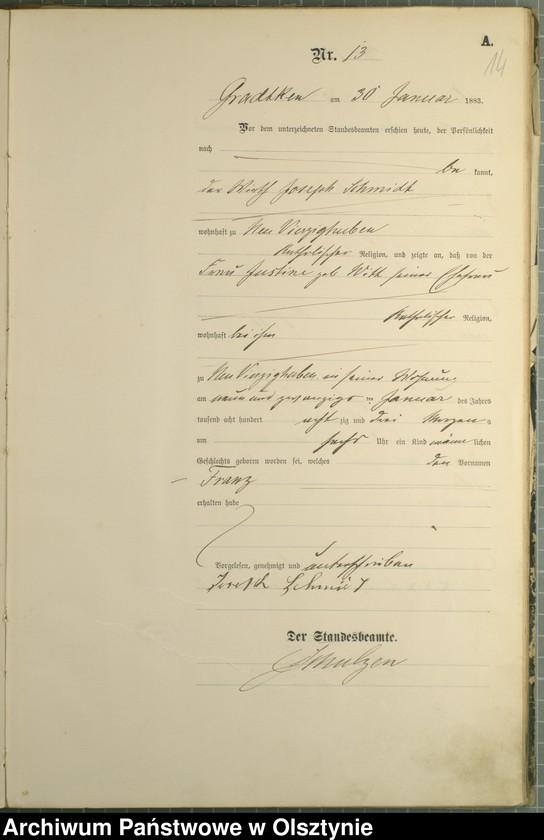 A.
14
Nr. 13
Gradtken am 30 Januar 1883.
Vor dem unterzeichneten Standesbeamten erschien heute, der Persönlichkeit
nach
be kannt,
der Wirth Joseph Schmidt
wohnhaft zu Neu Vierzighuben
katholischer Religion, und zeigte an, daß von der
Frau Justine geb Witt seiner Ehefrau
katholischer Religion,
wohnhaft bei ihm
zu Neu Vierzighuben in seiner Wohnung
am neun und zwanzigs ten Januar des Jahres
tausend acht hundert acht zig und drei Morgens
um sechs Uhr ein Kind männ lichen
Geschlechts geboren worden sei, welches den Vornamen
Franz
erhalten habe
Vorgelesen, genehmigt und unterschrieben
Joseph Schmidt
Der Standesbeamte.
Schulzen
Archiwum Państwowe w Olsztynie